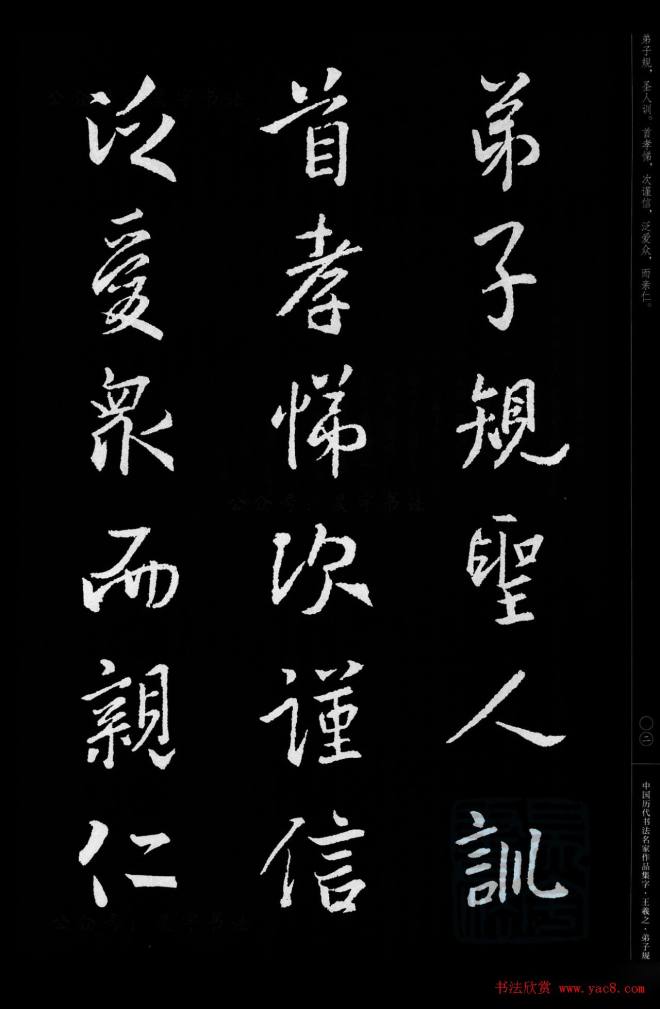 弟子規聖人訓
首孝悌次謹信
泛愛衆而親仁
弟子规，圣人训。首孝悌，次谨信，泛爱众，而亲仁。
〇二
中国历代书法名家作品集字·王羲之·弟子规
书法欣赏 www.yac8.com